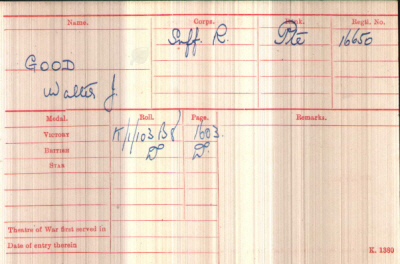 Name. Corps. Rank. Regtl. No.
Suff. R. Pte 16650
GOOD
Walter J.
Medal. Roll. Page. Remarks.
Victory K/1/103 B8 1603.
British Dº Dº
Star
Theatre of War first served in
Date of entry therein
K. 1380